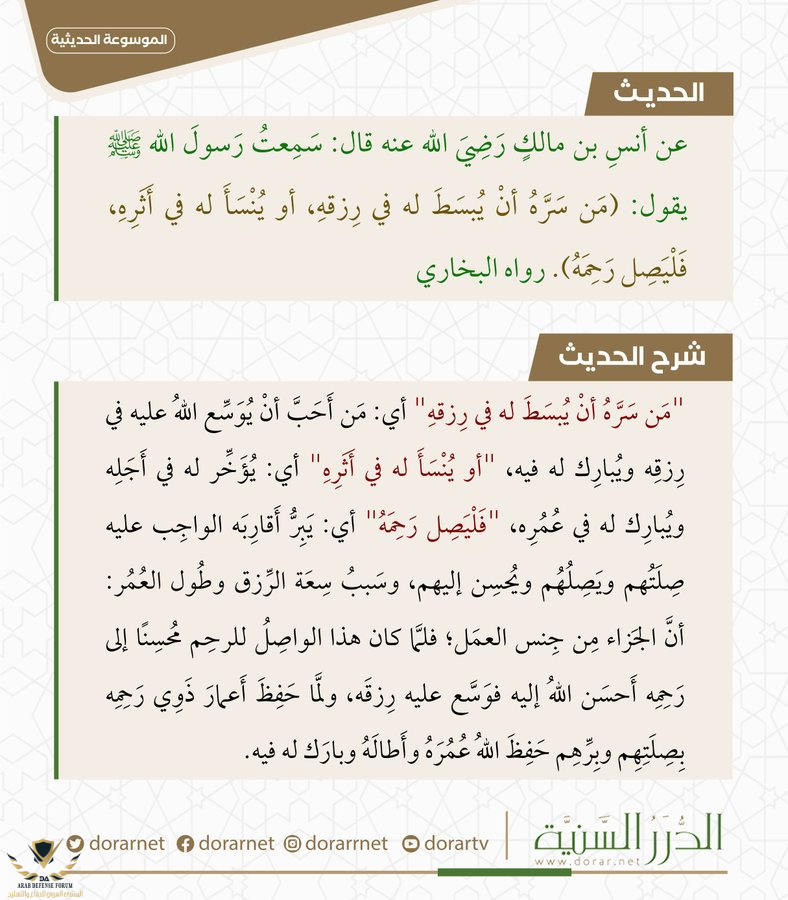 الموسوعة الحديثية
الحديث
عن أنسِ بن مالكٍ رَضِيَ الله عنه قال: سَمِعتُ رَسولَ الله ﷺ
يقول: (مَن سَرَّهُ أنْ يُبسَطَ له في رِزقهِ، أو يُنْسَأَ له في أَثَرِهِ،
فَلْيَصِل رَحِمَهُ). رواه البخاري
شرح الحديث
"مَن سَرَّهُ أنْ يُبسَطَ له في رِزقهِ" أي: مَن أَحَبَّ أنْ يُوَسِّع اللهُ عليه في
رِزقِه ويُبارِك له فيه، "أو يُنْسَأَ له في أَثَرِهِ" أي: يُؤَخِّر له في أَجَلِه
ويُبارِك له في عُمُرِه، "فَلْيَصِل رَحِمَهُ" أي: يَبِرُّ أَقارِبَه الواجِب عليه
صِلَتُهم ويَصِلُهُم ويُحسِن إليهم، وسَببُ سِعَة الرِّزق وطُول العُمُر:
أنَّ الجَزاء مِن جِنس العمَل؛ فلمَّا كان هذا الواصِلُ للرحِم مُحسِنًا إلى
رَحِمِه أَحسَن اللهُ إليه فوَسَّع عليه رِزقَه، ولمَّا حَفِظَ أَعمارَ ذَوِي رَحِمِهِ
بِصِلَتِهِم وبِرِّهِم حَفِظَ اللهُ عُمُرَهُ وأَطالَهُ وبارَك له فيه.
الدُّرَرُ السَّنيَّة
www.dorar.net
dorarnet dorarnet dorarrnet dorartv
DA
ARAB DEFENSE FORUM
المنتدى العربي للدفاع والتسليح